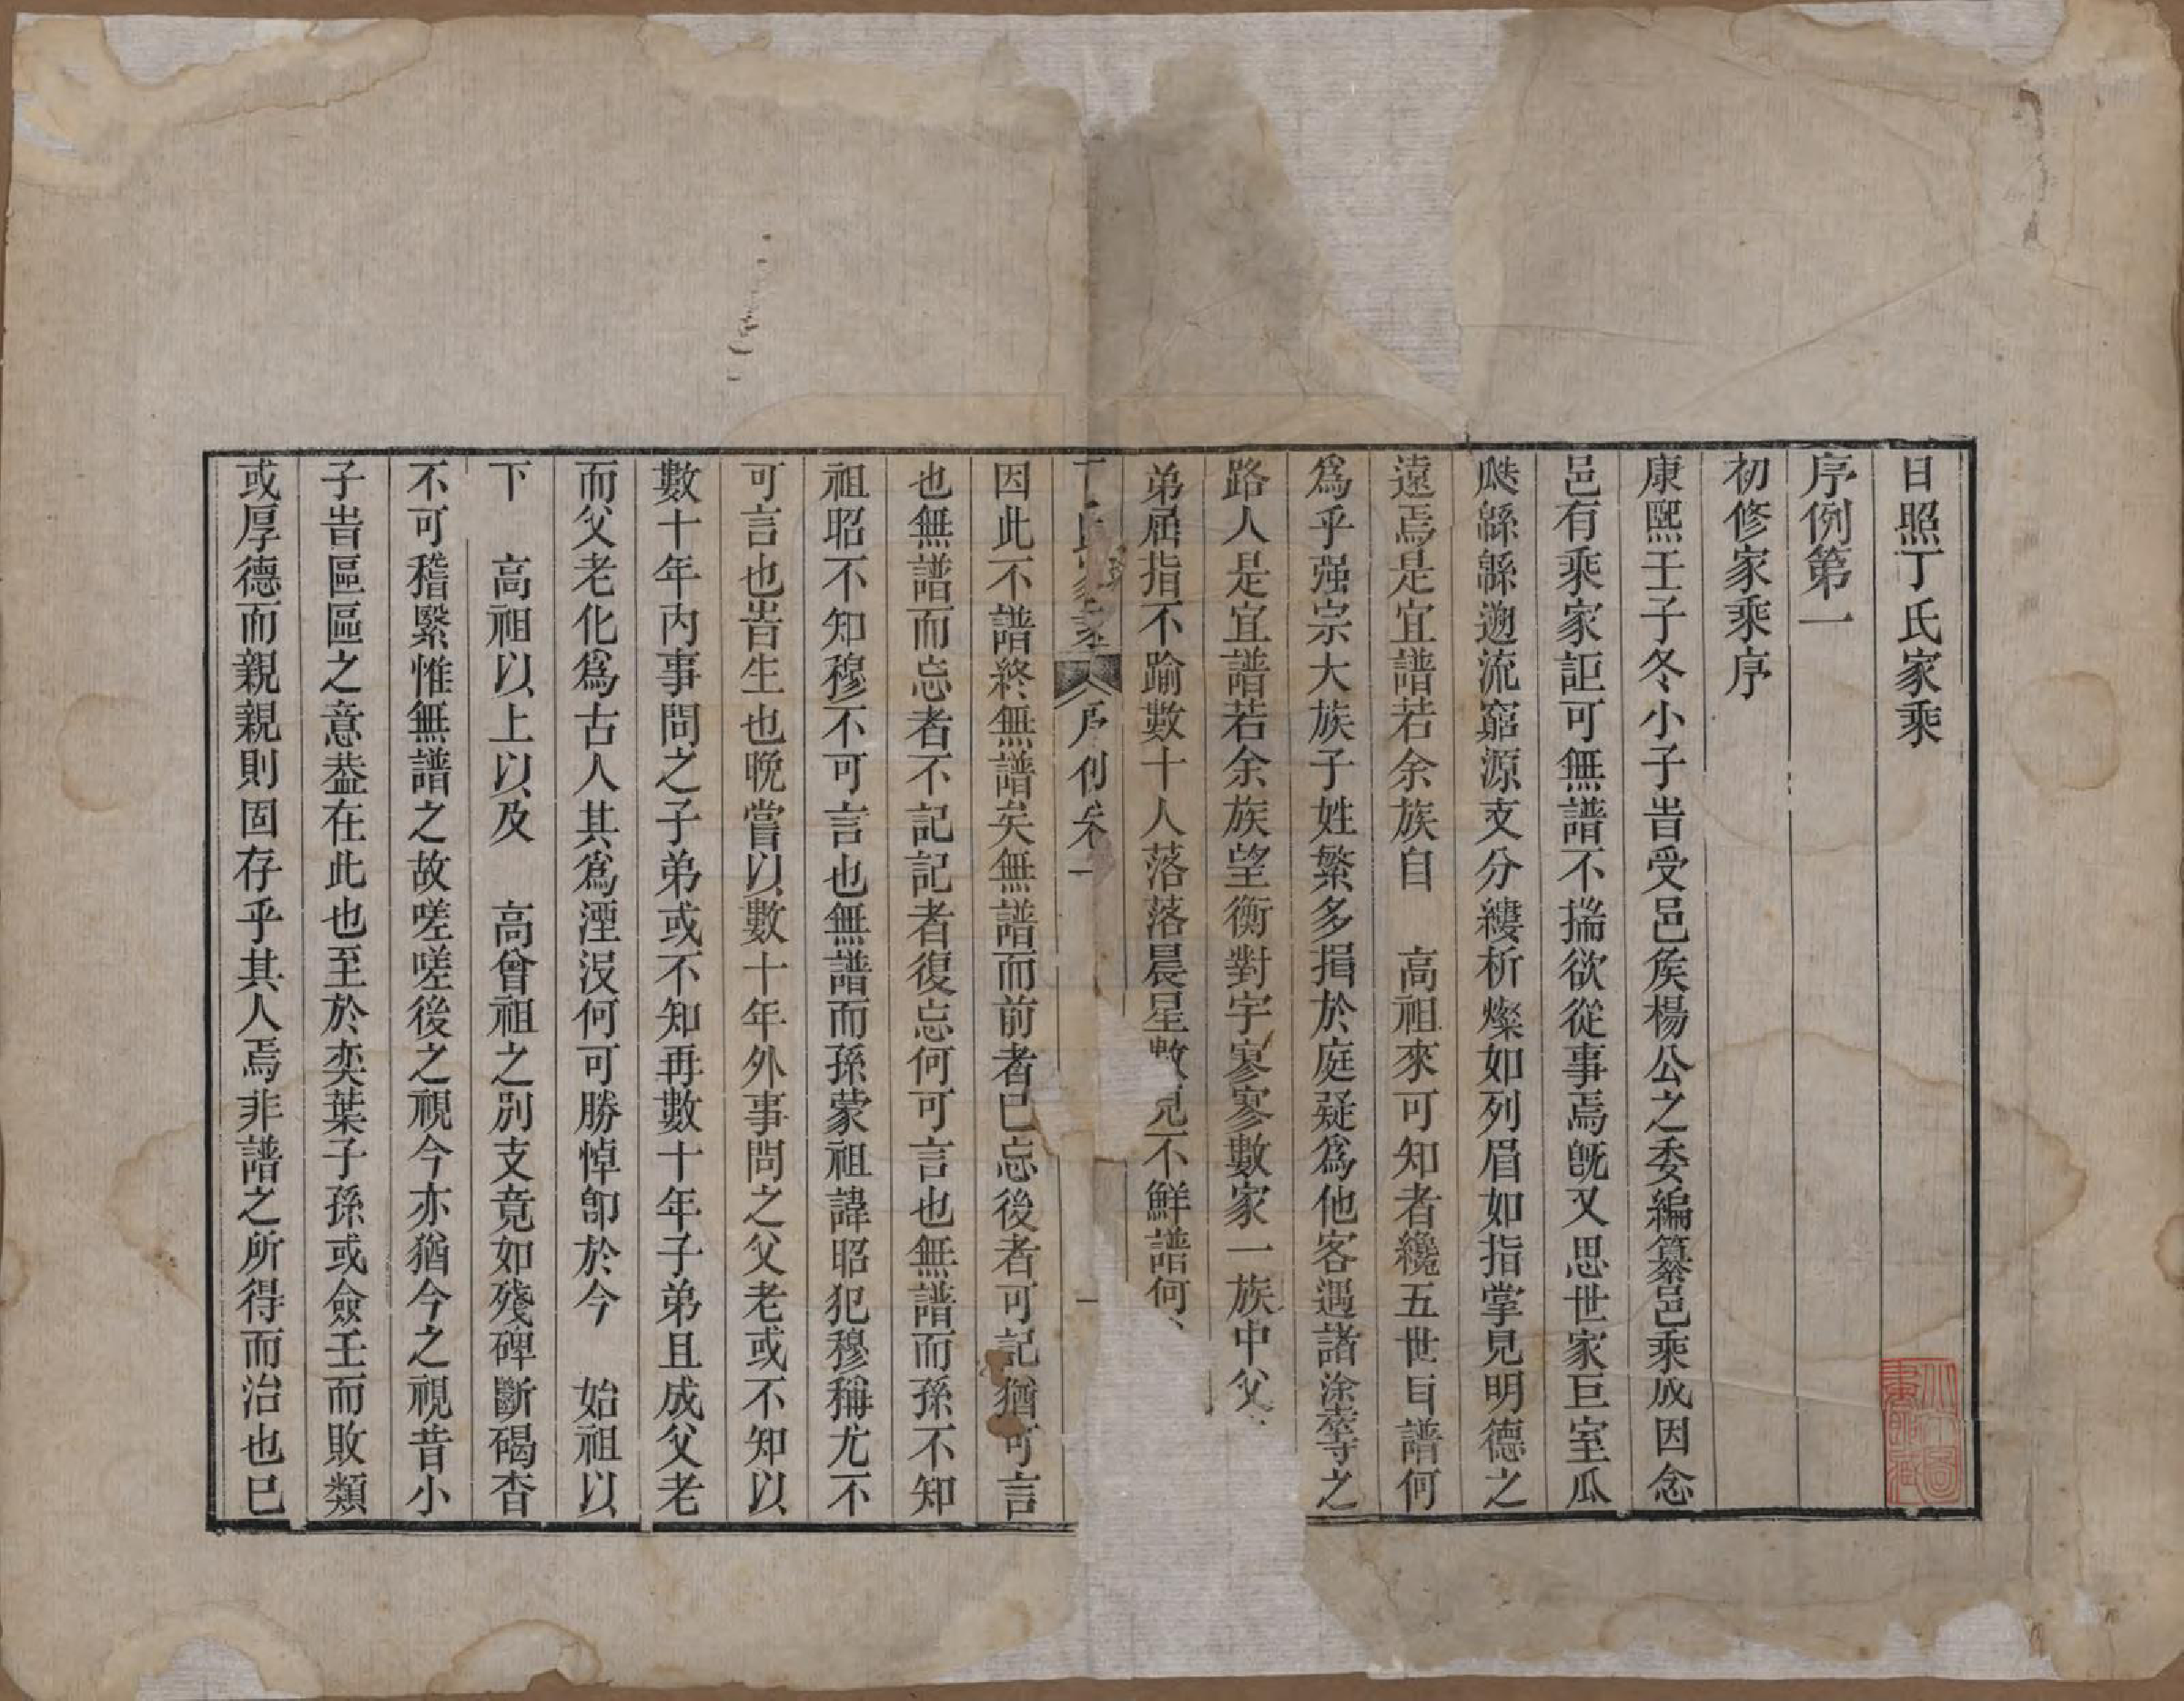 日照丁氏家乘
序例第一
初修家乘序
康熙壬子冬小子旹受邑矦楊公之委編纂邑乘成因念
邑有乘家詎可無譜不揣欲從事焉旣又思世家巨室瓜
瓞緜緜遡流窮源支分縷析燦如列眉如指掌見明德之
遠焉是宜譜若余族自　高祖來可知者纔五世㠯譜何
爲乎强宗大族子姓繁多揖於庭疑爲他客遇諸涂等之
路人是宜譜若余族望衡對宇寥寥數家一族中父
弟屈指不踰數十人落落晨星數見不鮮譜何
丁氏家乘　序例卷一　一
因此不譜終無譜矣無譜而前者已忘後者可記猶可言
也無譜而忘者不記記者復忘何可言也無譜而孫不知
祖昭不知穆不可言也無譜而孫蒙祖諱昭犯穆稱尤不
可言也旹生也晚嘗以數十年外事問之父老或不知以
數十年內事問之子弟或不知再數十年子弟且成父老
而父老化爲古人其爲湮沒何可勝悼卽於今　始祖以
下　高祖以上以及　高曾祖之別支竟如殘碑斷碣杳
不可稽繄惟無譜之故嗟嗟後之視今亦猶今之視昔小
子旹區區之意葢在此也至於奕葉子孫或僉壬而敗類
或厚德而親親則固存乎其人焉非譜之所得而治也已